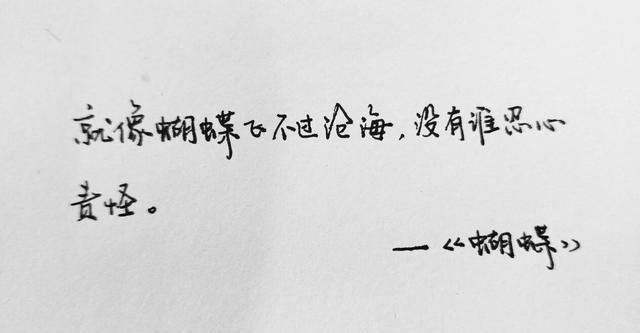 就像蝴蝶飞不过沧海,没有谁忍心
责怪。
—《蝴蝶》